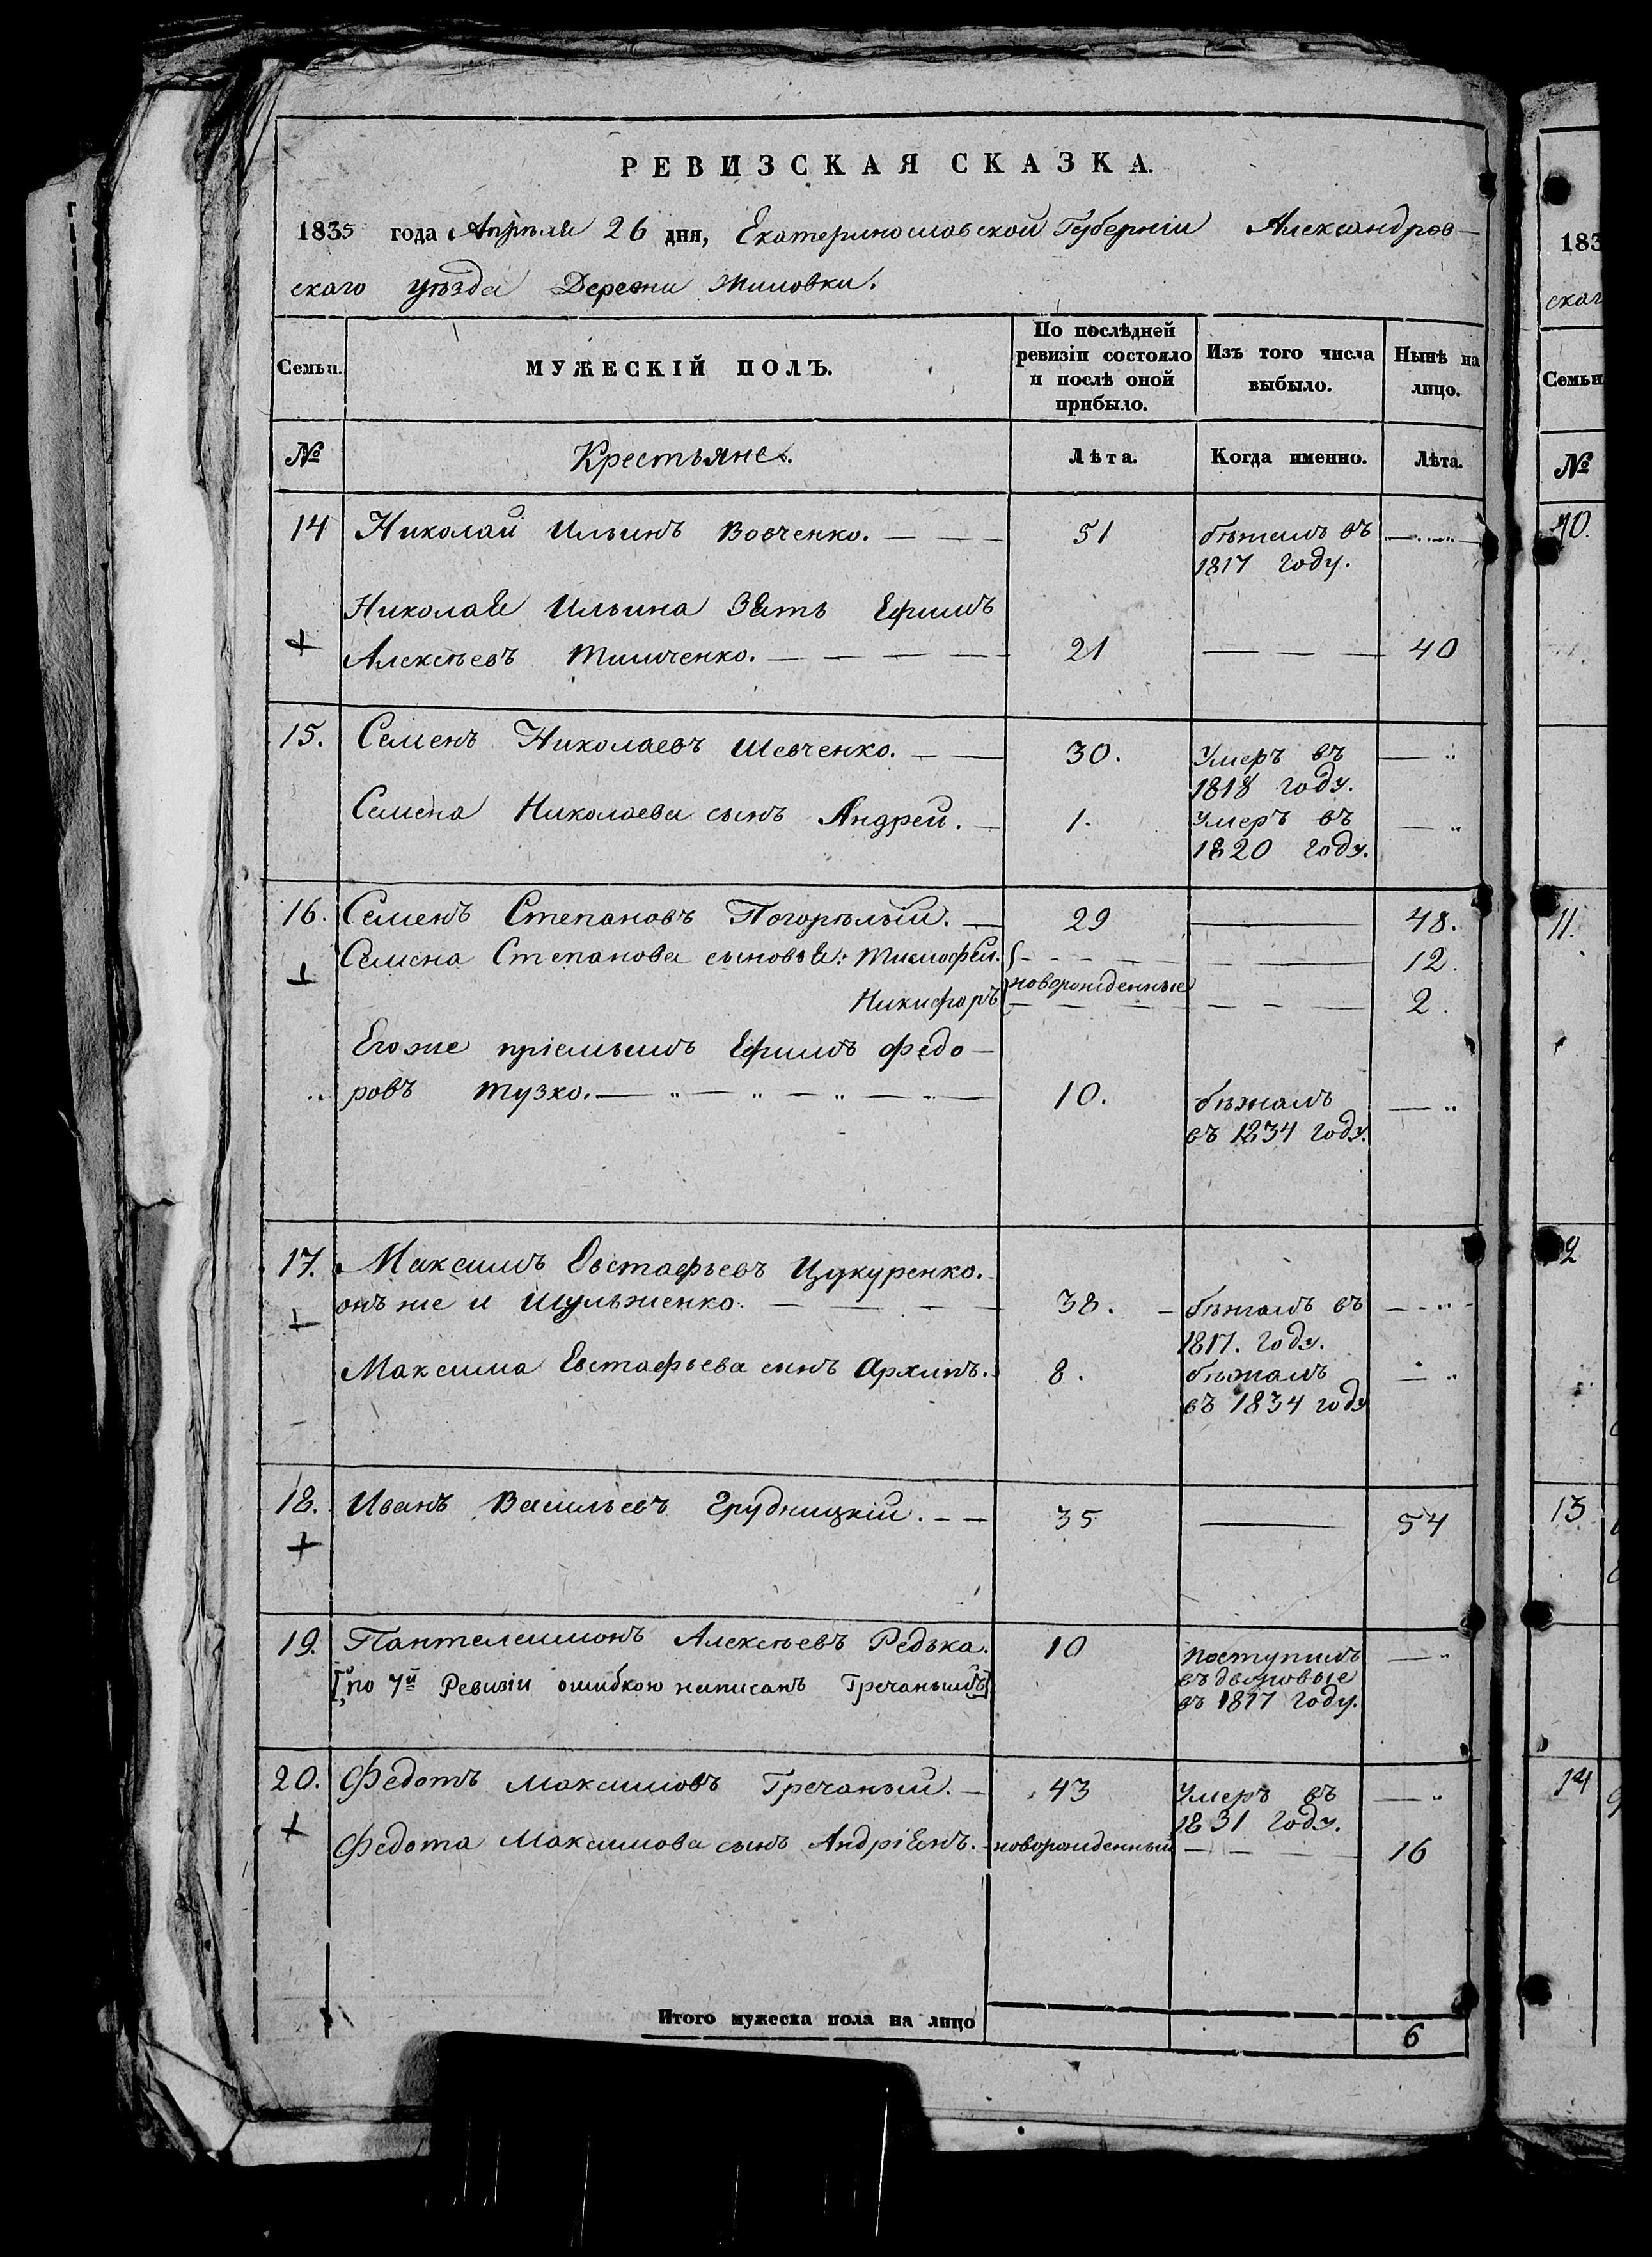 РЕВИЗСКАЯ СКАЗКА.
1835 года Апрѣля 26 дня, Екатеринославской Губерніи Александров-
скаго уѣзда Деревни Миловки.
Семьи. МУЖЕСКІЙ ПОЛЪ. По послѣдней ревизіи состояло и послѣ оной прибыло. Изъ того числа выбыло. Нынѣ на лицо.
№ Крестьяне. Лѣта. Когда именно. Лѣта.
14 Николай Ильинъ Вовченко. — — 51 бѣжалъ въ
1817 году.
Николая Ильина Зять Ефимъ
+ Алексѣевъ Тимченко. — — — — 21 — — — 40
15. Семенъ Николаевъ Шевченко. — — 30. Умеръ въ — „
1818 году.
Семена Николаева сынъ Андрей. — 1. Умеръ въ — „
1820 году.
16. Семенъ Степановъ Погорѣлый. — 29 — 48.
+ Семена Степанова сыновья: Тимофей. 12.
новорожденные
Никифоръ 2.
Егоже пріемышъ Ефимъ Федо-
ровъ Тузко. — „ — „ — „ — „ — 10. бѣжалъ — „
въ 1834 году.
17. Максимъ Евстафьевъ Цукуренко.
+ онъ же и Шульженко. — — — — 38. — бѣжалъ въ — „
1817. году.
Максима Евстафьева сынъ Архипъ. 8. бѣжалъ — „
въ 1834 году
18. Иванъ Васильевъ Грудницкій. — — 35 — 54
+
19. Пантелеимонъ Алексѣевъ Редька. 10 поступилъ — „
[по 7й Ревизіи ошибкою написанъ Гречанымъ] въ дворовые
въ 1817 году.
20. Федотъ Максимовъ Гречаный. — 43 Умеръ въ — „
+ 1831 году.
Федота Максимова сынъ Андріянъ. — новорожденный — — — 16
Итого мужеска пола на лицо 6
183
скаг
Семьи
№
10.
11.
12
13
14